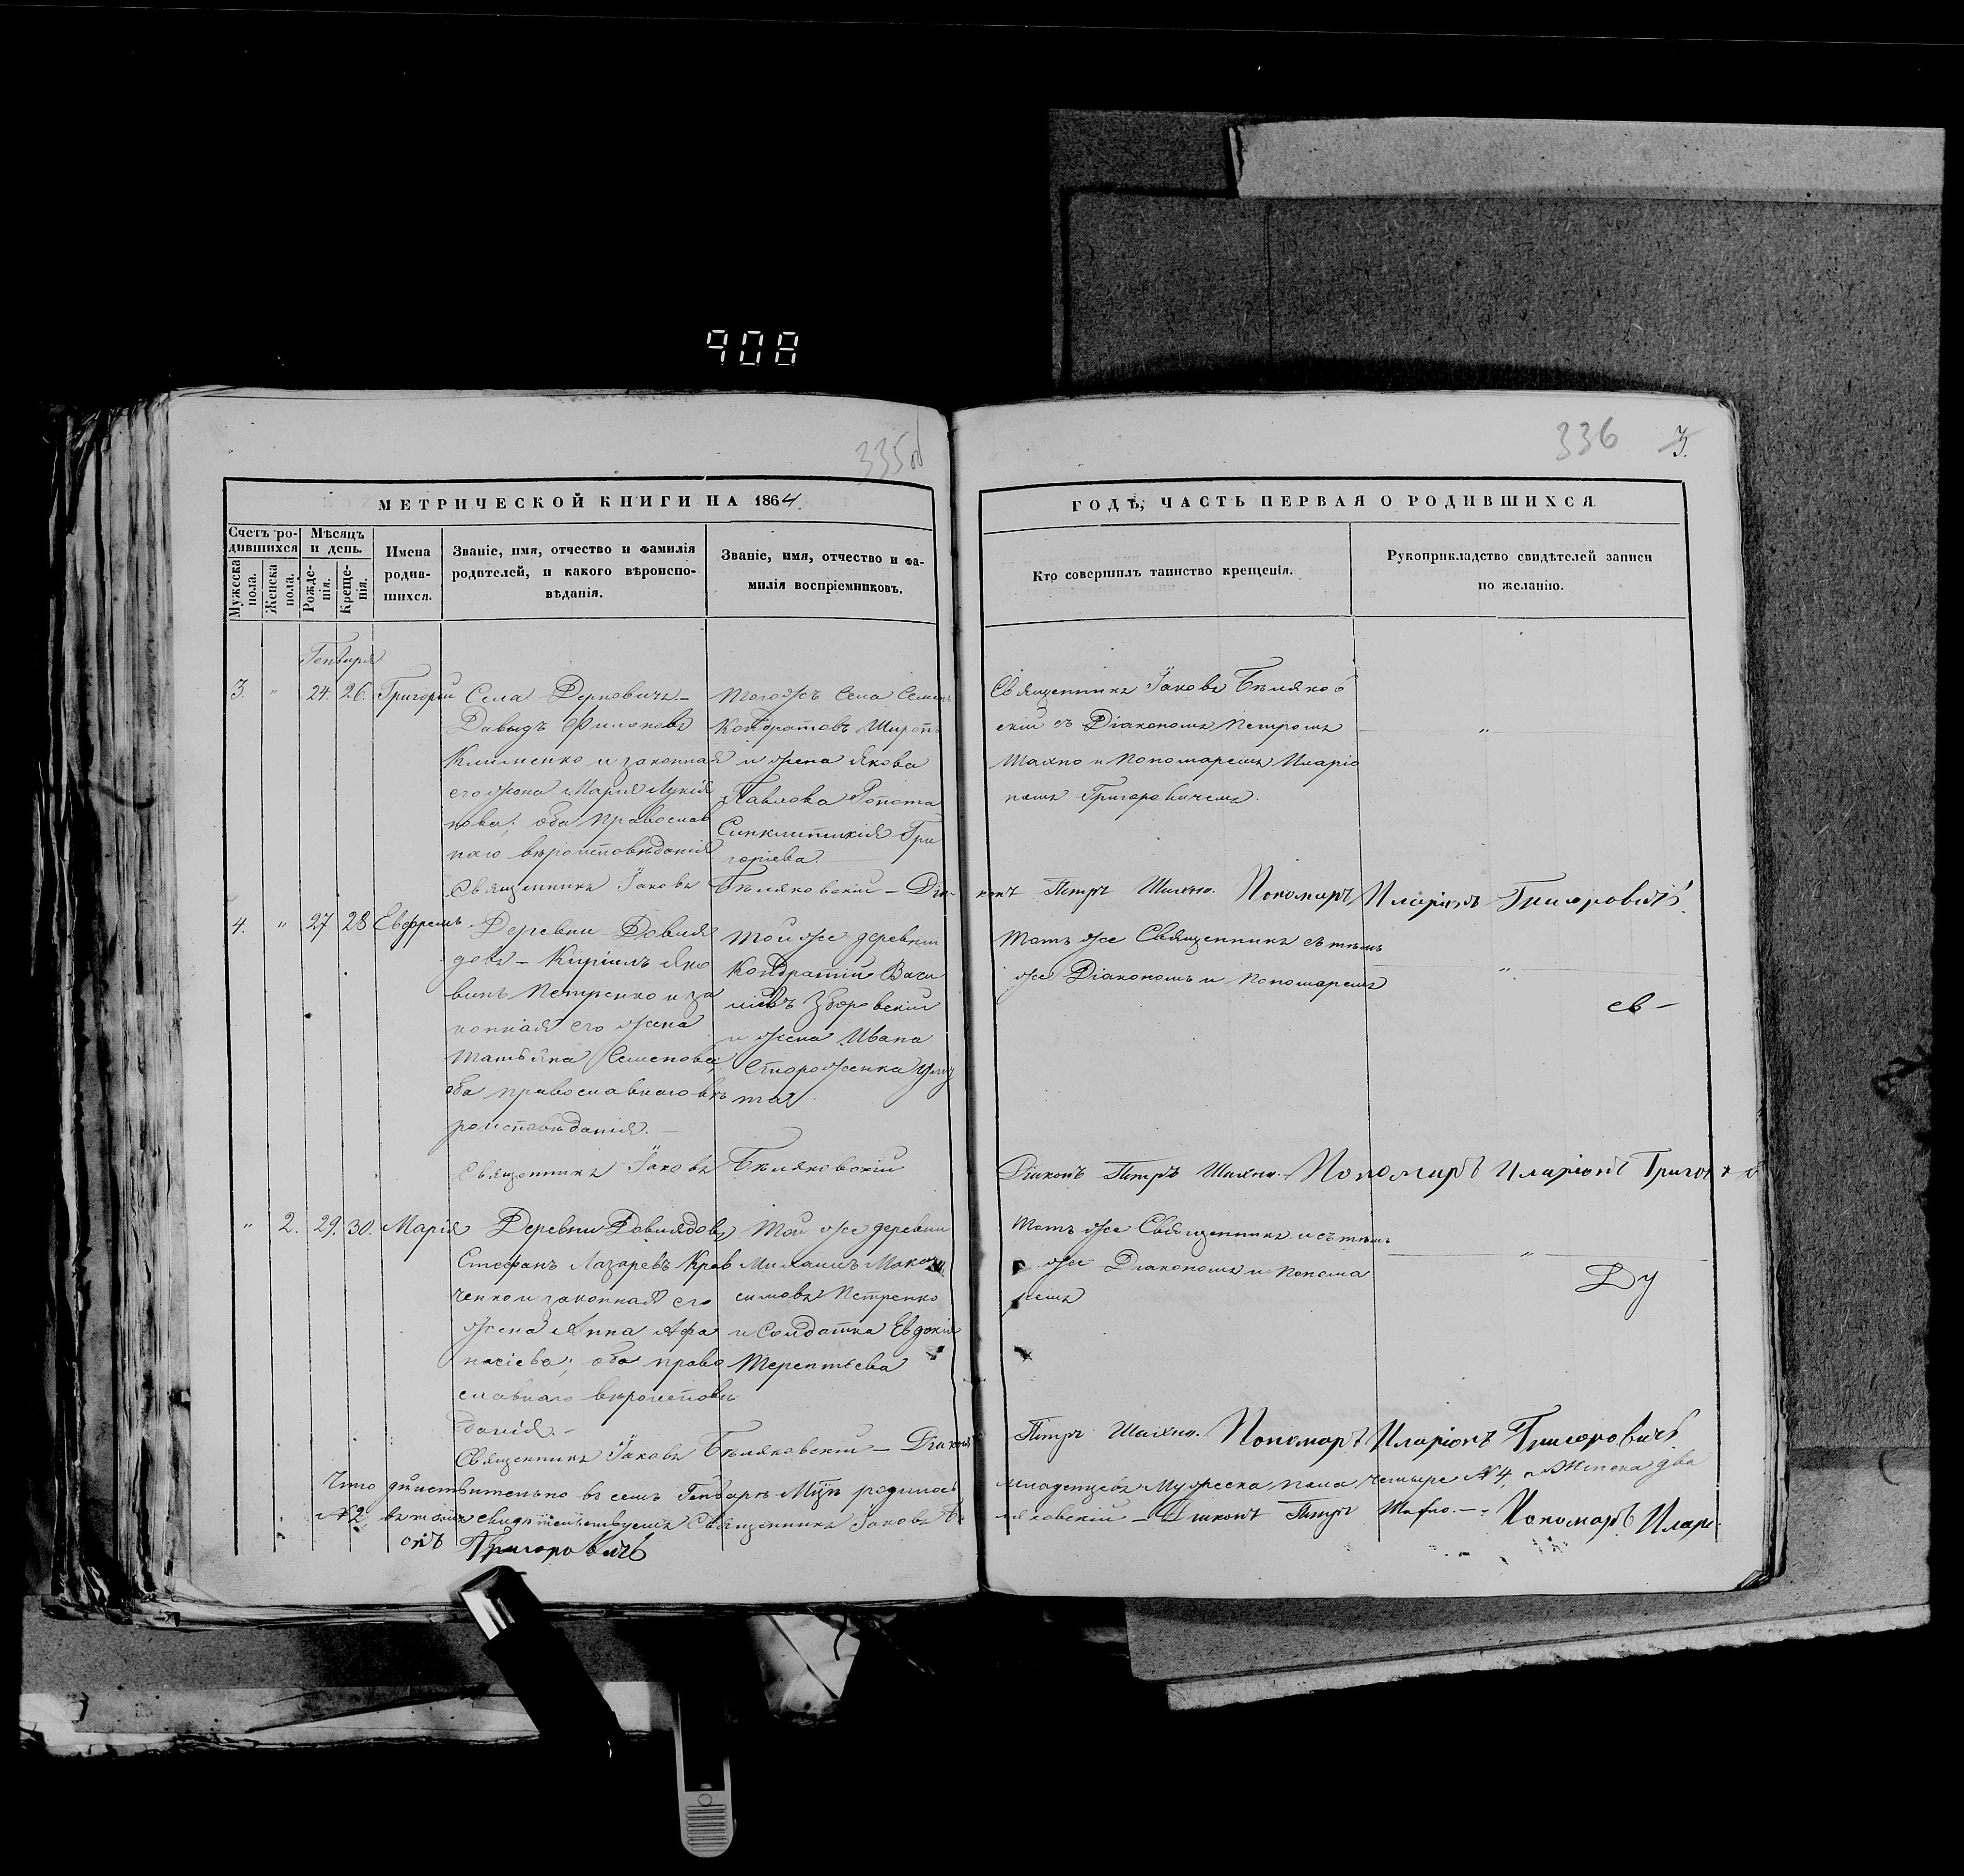 908
335об
336
3.
МЕТРИЧЕСКОЙ КНИГИ НА 1864.
ГОДЪ, ЧАСТЬ ПЕРВАЯ О РОДИВШИХСЯ
Счетъ ро-
дившихся
Мужеска
пола.
Женска
пола.
Мѣсяцъ
и день.
Рожде-
нія.
Креще-
нія.
Имена
родив-
шихся.
Званіе, имя, отчество и фамилія
родителей, и какого вѣроиспо-
вѣданія.
Званіе, имя, отчество и фа-
милія воспріемниковъ.
Кто совершилъ таинство крещенія.
Рукоприкладство свидѣтелей записи
по желанію.
Генваря
3. " 24. 26. Григорій
Села
Давыдъ Филоновъ
Клименко и законная
его жена Марія
нова; оба православ
наго вѣроисповѣданія
Тогожъ Села
Кондратовъ
и жена Якова
Павлова
Синклитикія Гри
горіева.
Священникъ Іаковъ Бѣляков
скій съ Діакономъ Петромъ
Шахно и Пономаремъ Иларіо
номъ Григоровичемъ.
"
Священникъ Іаковъ Бѣляковскій – Діа-
конъ Петръ Шахно. Пономарь Иларіонъ Григоровичъ.
4. " 27 28 Евфремъ
Деревни Довля
довъ – Кирилъ Яко
влевъ Петренко и за
конная его жена
Татьяна Семенова;
оба православнаго вѣ
роисповѣданія. –
Той же деревни
Кондратій
Зборовскій
и жена Ивана
Стороженка
Тотъ же Священникъ съ тѣмъ
же Діакономъ и Пономаремъ
"
ев –
Священникъ Іаковъ Бѣляковскій
Діаконъ Петръ Шахно. – Пономарь Иларіонъ
" 2. 29. 30. Марія
Деревни Довлядовъ
Стефанъ Лазаревъ Крав
ченко и законная его
жена Анна Афа
насіева; оба право
славнаго вѣроисповѣ
данія. –
Той же деревни
Михаилъ Мак
симовъ Петренко
и Солдатка Евдокія
Терентьева
Тотъ же Священникъ и съ тѣмъ
же Діакономъ и Понома
ремъ
"
Ду
Священникъ Іаковъ Бѣляковскій – Діаконъ
Петръ Шахно. Пономарь Иларіонъ Григоровичъ.
Что дѣйствительно въ семъ Генварѣ М-цѣ родилось
младенцевъ Мужеска пола четыре №4, и Женска два
№2, въ томъ свидѣтельствуемъ Священникъ Іаковъ Бѣ
ляковскій – Діаконъ Петръ Шахно. – Пономарь Иларі-
онъ Григоровичъ